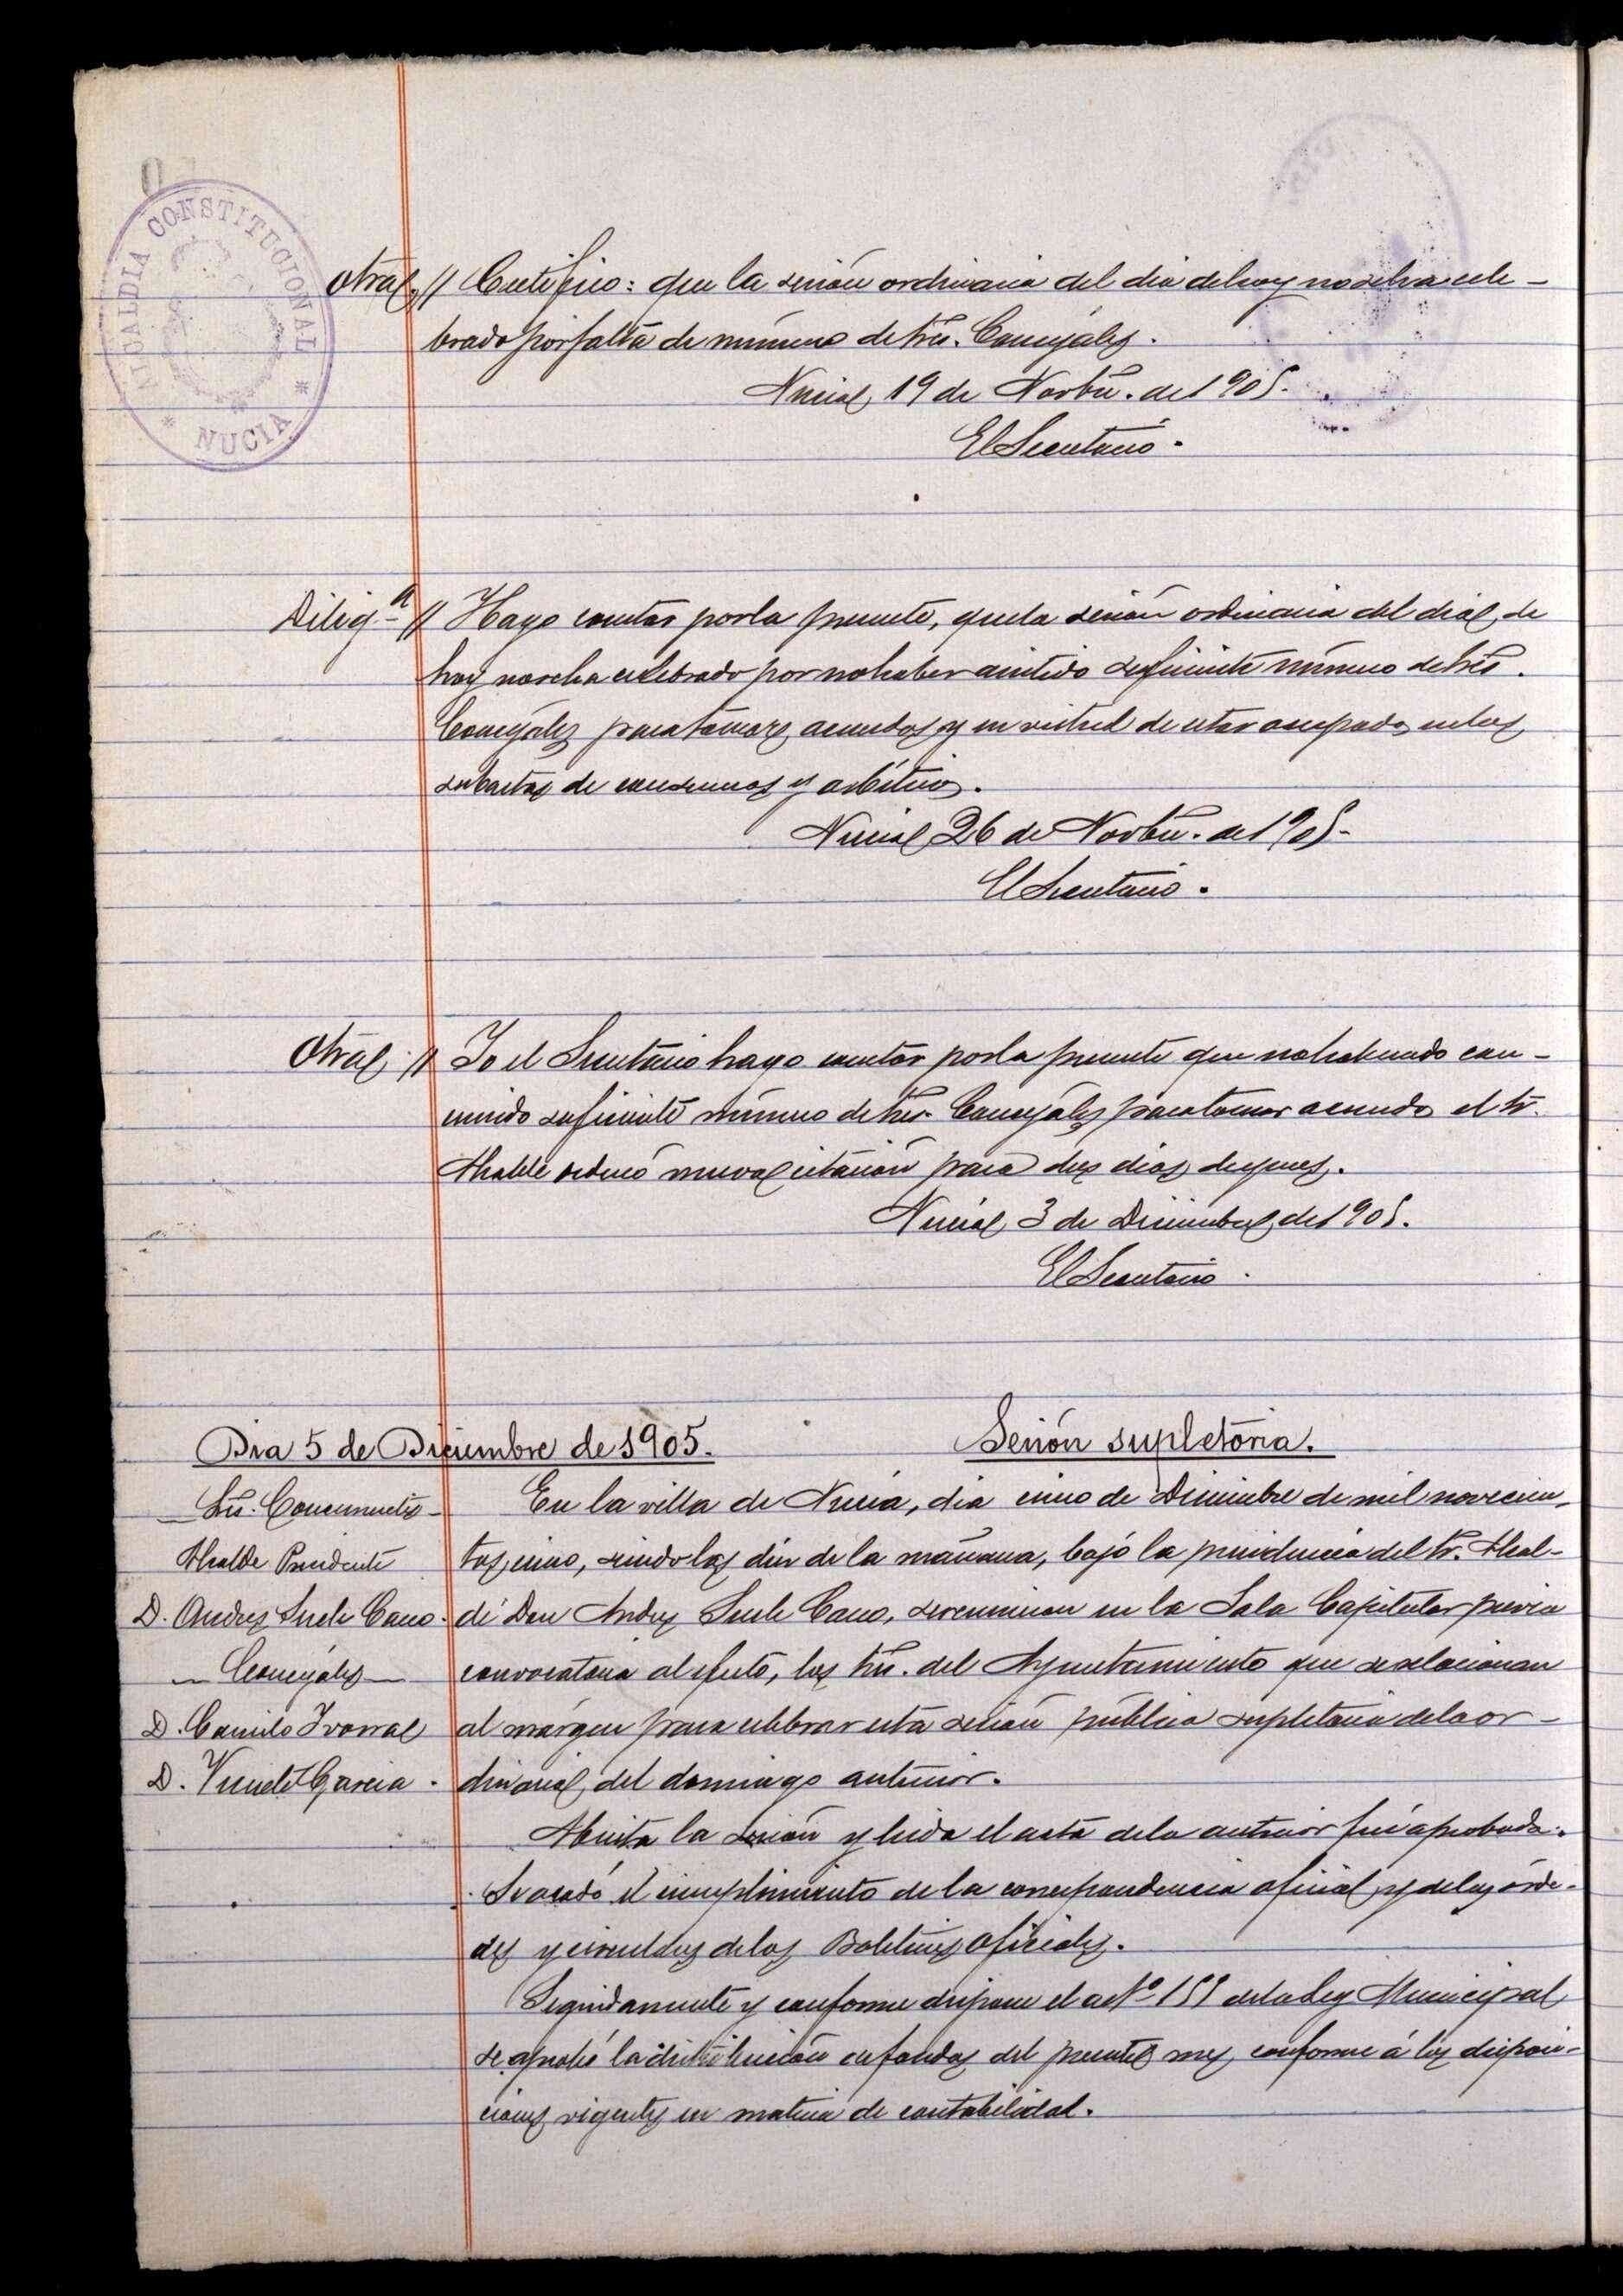 ALCALDIA CONSTITUCIONAL
* NUCIA *
Otra // Certifico: que la sesión ordinaria del dia de hoy no se ha cele-
brado por falta de número de Sres. Concejales.
Nucia 19 de Novbre. de 1905.
El Secretario.
Diliga // Hago constar por la presente, que la sesión ordinaria del dia de
hoy no se ha celebrado por no haber asistido suficiente número de Sres.
Concejales para tomar acuerdos y en virtud de estar ocupados en las
subastas de consumos y arbitrios.
Nucia 26 de Novbre. de 1905-
El Secretario.
Otra // Yo el Secretario hago constar por la presente que no habiendo con-
currido suficiente número de Sres. Concejales para tomar acuerdo el Sr.
Alcalde ordenó nueva citación para dos dias despues.
Nucia 3 de Diciembre de 1905.
El Secretario.
Dia 5 de Diciembre de 1905. Sesión supletoria.
Sres. Concurrentes
Alcalde Presidente
D. Andres Cano.
Concejales
D. Camilo Ivorra
D. Vicente Garcia.
En la villa de Nucia, dia cinco de Diciembre de mil novecien-
tos cinco, siendo las diez de la mañana, bajo la presidencia del Sr. Alcal-
de Don Andres Cano, se reunieron en la Sala Capitular previa
convocatoria al efecto, los Sres. del Ayuntamiento que se relacionan
al márgen para celebrar esta sesión pública supletoria de la or-
dinaria del domingo anterior.
Abierta la sesión y leida el acta de la anterior fué aprobada.
Se acordó el cumplimiento de la correspondencia oficial y de las órde-
des y circulares de los Boletines oficiales.
Seguidamente y conforme dispone el artº 155 de la Ley Municipal
se aprobó la distribución de fondos del presente mes conforme á las disposi-
ciones vigentes en materia de contabilidad.